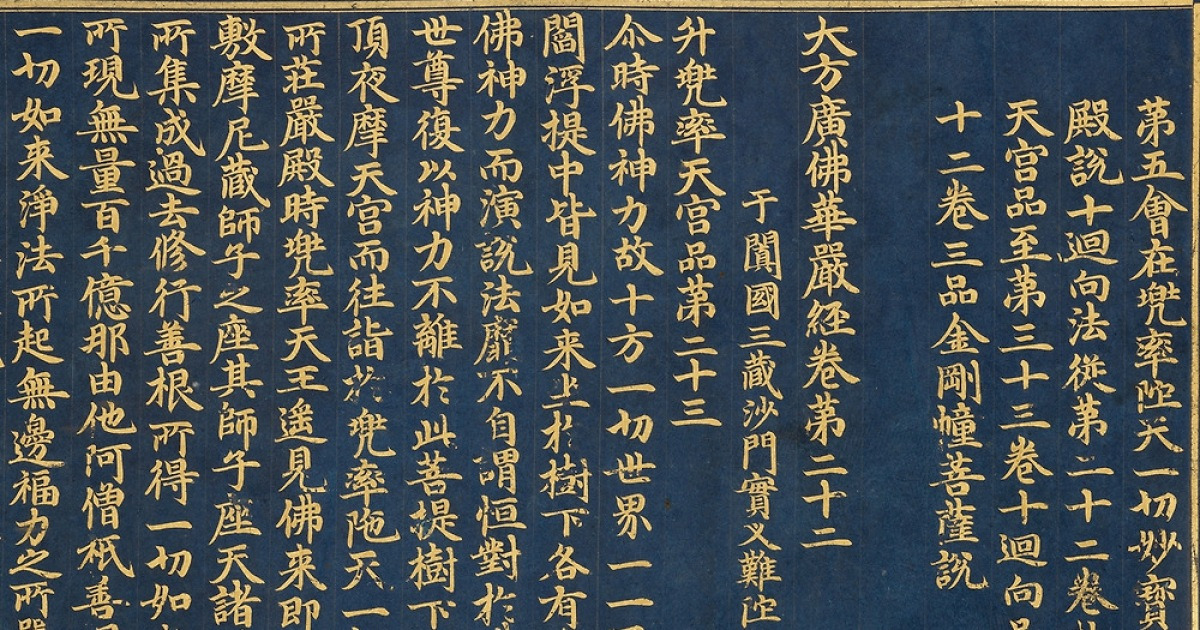 第五會在兜率陁天一切妙寳
殿說十迴向法從第二十二卷
天宮品至第三十三卷十迴向
十二卷三品金剛幢菩薩說
大方廣佛華嚴經卷第二十二
于闐國三藏沙門實叉難陁
升兠率天宮品第二十三
尒時佛神力故十方一切世界一一
閻浮提中皆見如来坐扵樹下各有
佛神力而演說法靡不自謂恒對扵
世尊復以神力不離扵此菩提樹下
頂夜摩天宮而往詣扵兠率陁天一
所莊嚴殿時兠率天王遥見佛来即
敷摩尼藏師子之座其師子座天諸
所集成過去修行善根所得一切如
所現無量百千億那由他阿僧祇善
一切如来淨法所起無邊福力之所